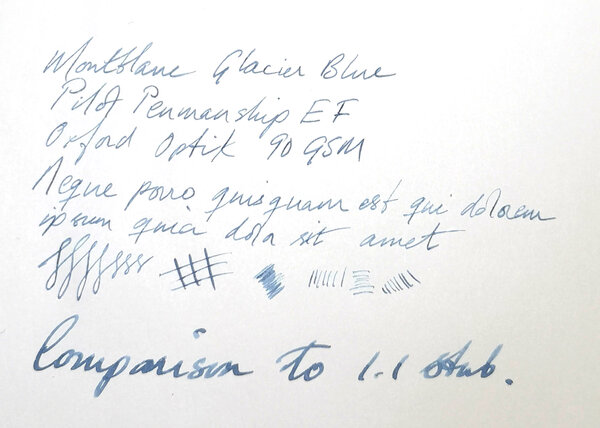 Montblanc Glacier Blue
Pilot Penmanship EF
Oxford Optik 90 GSM
Neque porro quisquam est qui dolorem
ipsum quia dolor sit amet
Comparison to 1.1 stub.